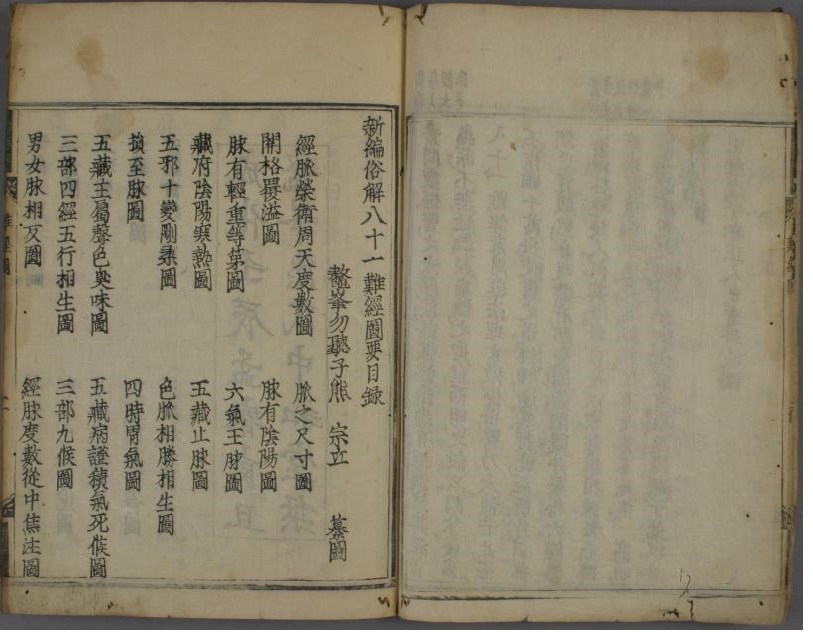 新編俗解八十一難經圖要目錄
鼇峯勿聽子熊 宗立 纂圖
經脉榮衛周天度數圖 脈之尺寸圖
關格覆溢圖 脉有陰陽圖
脉有輕重等第圖 六氣王脉圖
藏府陰陽寒熱圖 五藏止脉圖
五邪十變剛柔圖 色脈相勝相生圖
損至脉圖 四時胃氣圖
五藏主屬聲色臭味圖 五藏病證積氣死候圖
三部四經五行相生圖 三部九候圖
男女脉相反圖 經脉度數從中焦注圖